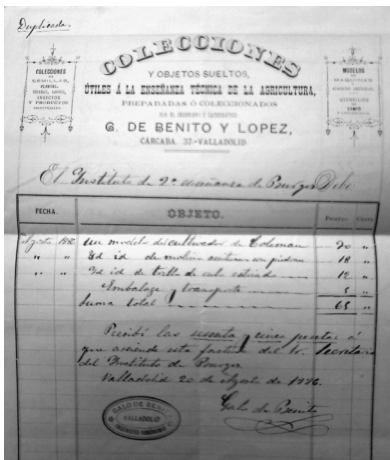 Duplicado.
COLECCIONES
Y OBJETOS SUELTOS,
ÚTILES Á LA ENSEÑANZA TÉCNICA DE LA AGRICULTURA,
PREPARADAS Ó COLECCIONADOS
POR EL INGENIERO Y CATEDRÁTICO
G. DE BENITO Y LOPEZ,
CÁRCABA, 37-VALLADOLID
COLECCIONES
DE
SEMILLAS,
Y PRODUCTOS
MODELOS
DE
MÁQUINAS
El Instituto de 2ª enseñanza de Burgos Debe
FECHA. OBJETO. Pesetas Cents
Agosto Un modelo de cultivador de Coleman 30 "
" " Id id de molino 18 "
" " Id id de trillo de 12 "
Embalage y transporte 5 "
Suma total 65 "
Recibí las sesenta y cinco pesetas á
que asciende esta factura del Sr. Secretario
del Instituto de Burgos.
Valladolid 20 de Agosto de 1886.
Galo de Benito
GALO DE BENITO
VALLADOLID